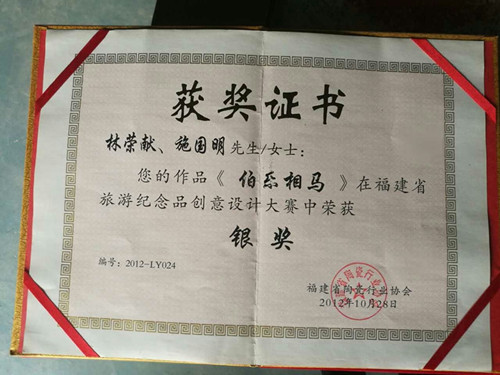 获奖证书
林荣献、施国明先生/女士：
您的作品《伯乐相马》在福建省
旅游纪念品创意设计大赛中荣获
银奖
编号：2012-LY024
福建省陶瓷行业协会
2012年10月28日